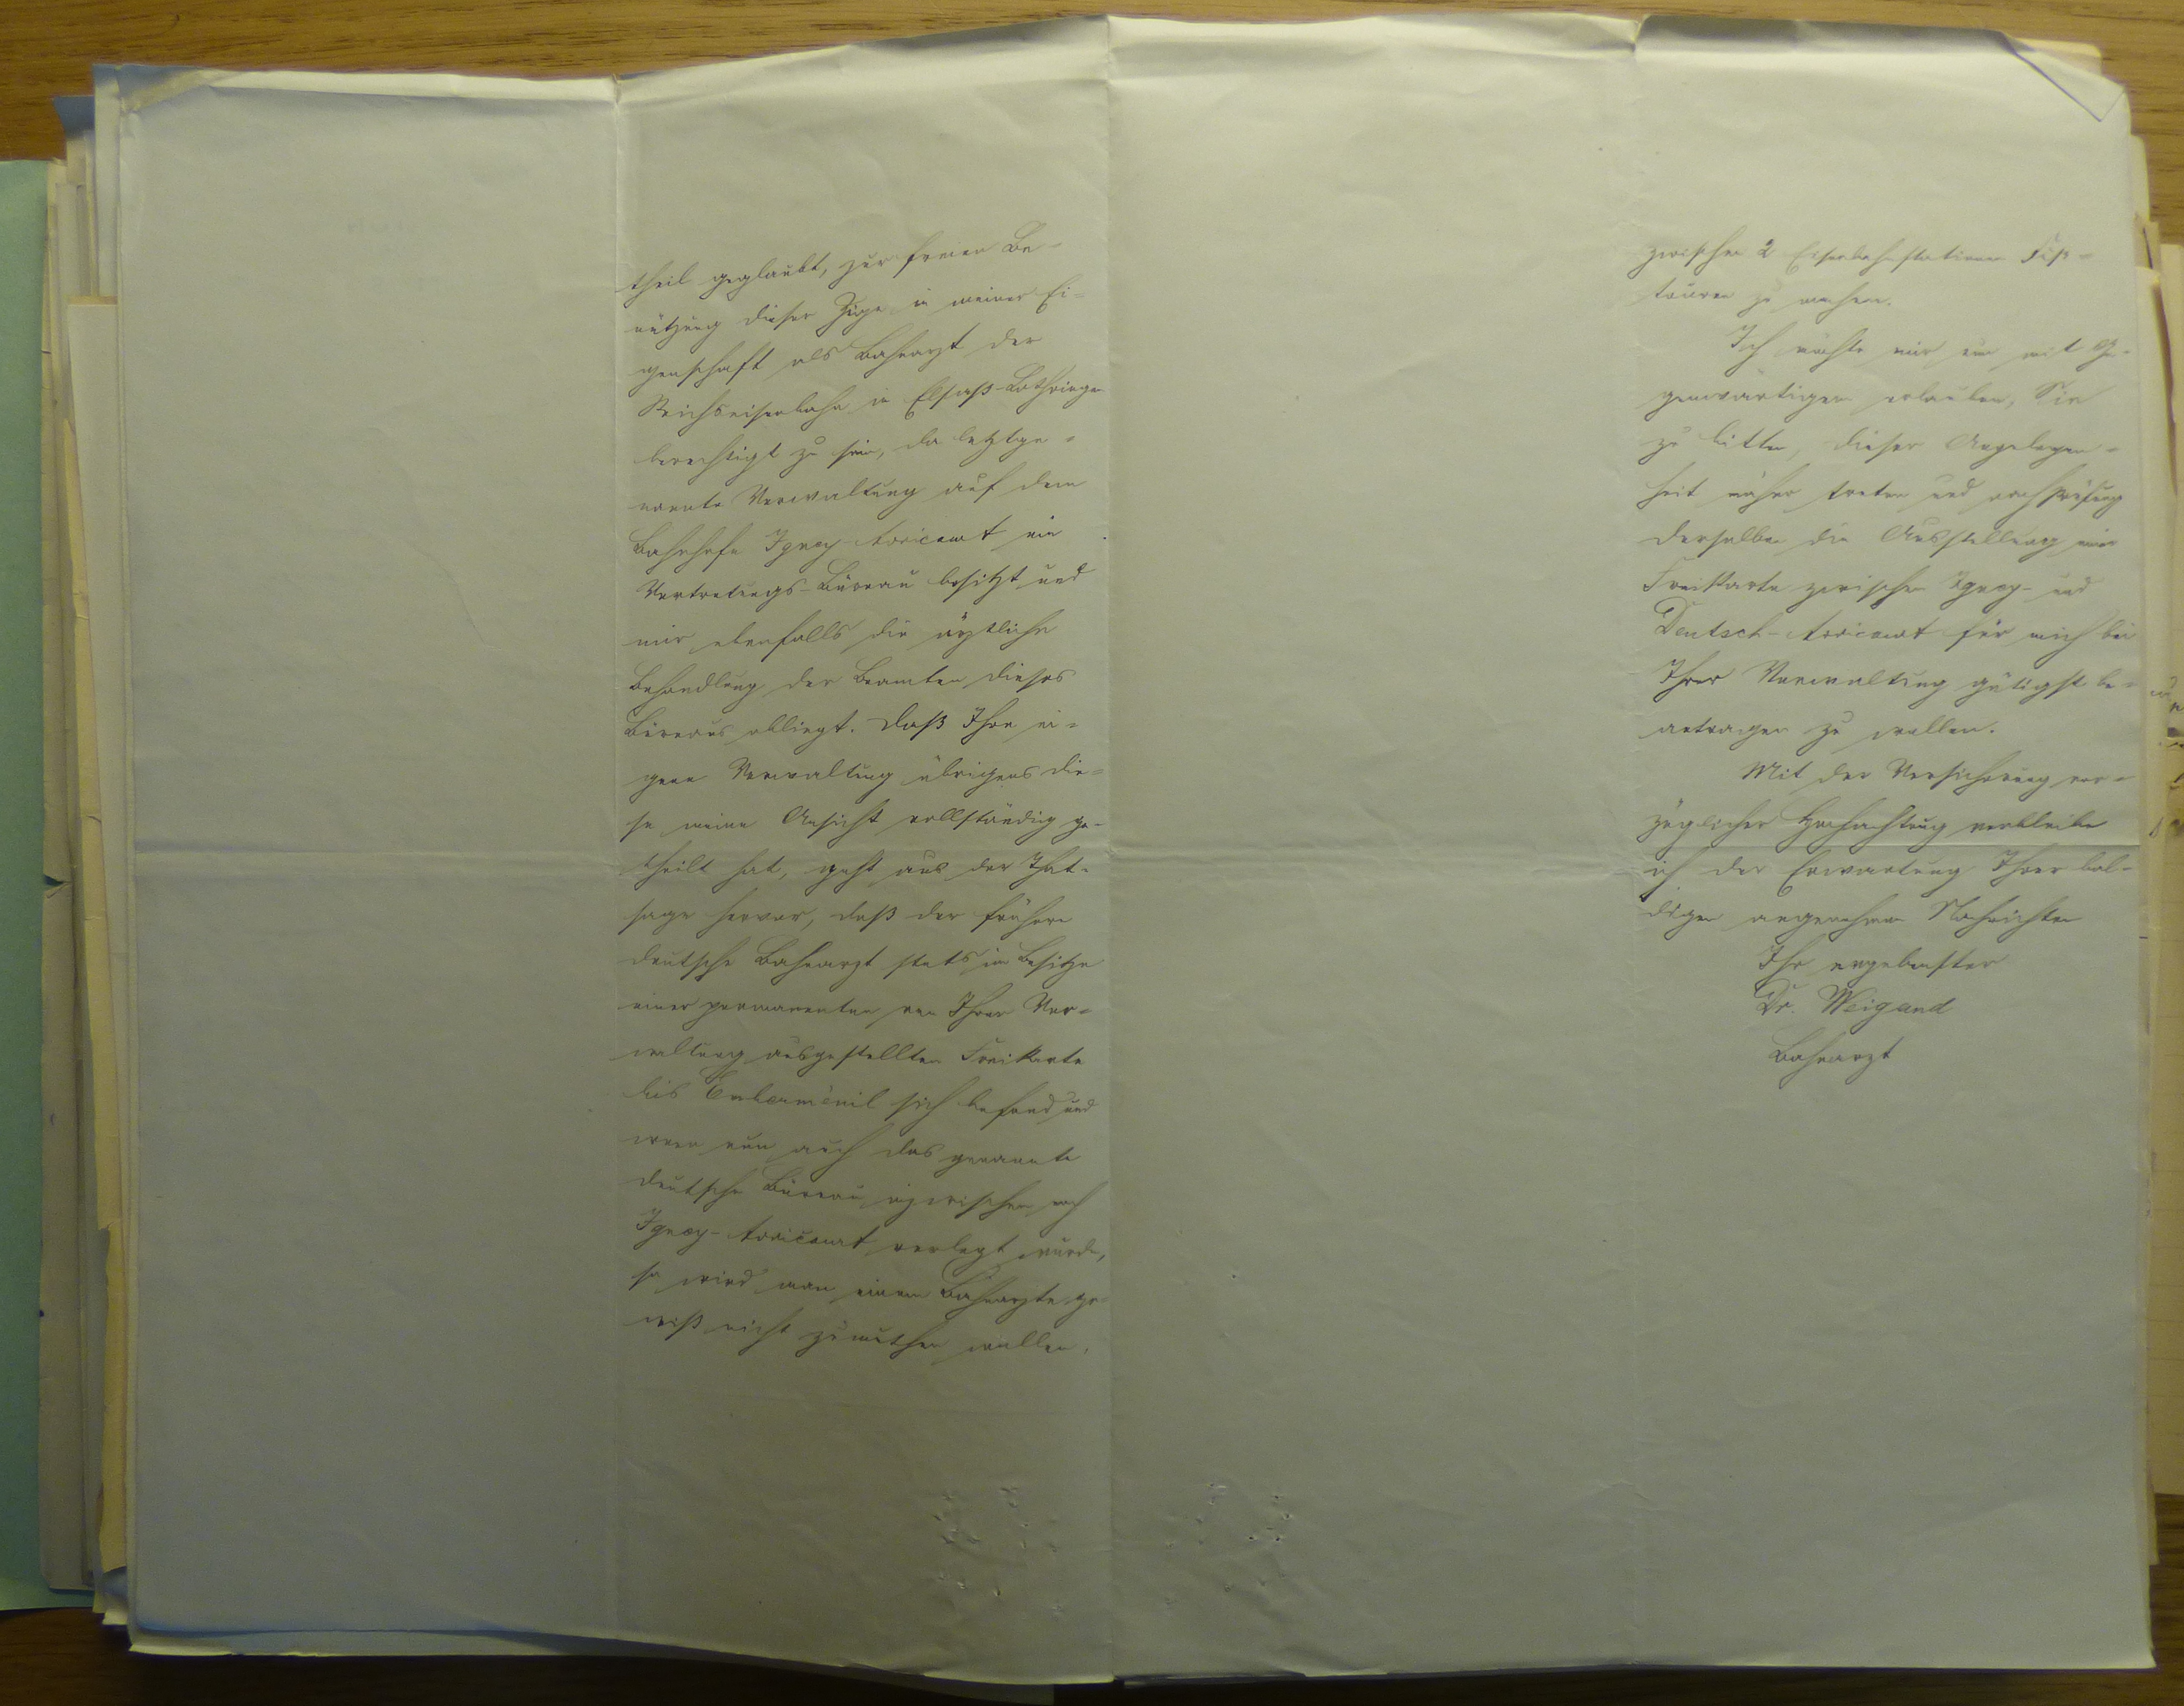 theil geglaubt, zur freien Be-
nützung dieser Züge in meiner Ei-
genschaft als Bahnarzt der
Reichseisenbahn in Elsaß-Lothringen
berechtigt zu sein, da letztge-
nannte Verwaltung auf dem
Bahnhofe Igney-Avricourt ein
Vertretungs-Büreau besitzt und
mir ebenfalls die ärztliche
Behandlung der Beamten dieses
Büreaus obliegt. Daß Ihre ei-
gene Verwaltung übrigens die-
se meine Ansicht vollständig ge-
theilt hat, geht aus der That-
sage hervor, daß der frühere
deutsche Bahnarzt stets im Besitze
einer permanenten von Ihrer Ver-
waltung ausgestellten Freikarte
bis Emberménil sich befand und
wenn nun auch das genannte
deutsche Büreau inzwischen nach
Igney-Avricourt verlegt wurde,
so wird man einem Bahnarzte ge-
wiß nicht zumuthen wollen,
zwischen 2 Eisenbahnstationen Fuß-
touren zu machen.
Ich möchte mir nun mit Ge-
genwärtigem erlauben, Sie
zu bitten, dieser Angelegen-
heit näher treten und nach Prüfung
derselben die Ausstellung einer
Freikarte zwischen Igney- und
Deutsch-Avricourt für mich bei
Ihrer Verwaltung gütigst be-
antragen zu wollen.
Mit der Versicherung vor-
züglicher Hochachtung verbleibe
ich der Erwartung Ihrer bal-
digen angenehmen Nachrichten
Ihr ergebenster
Dr. Weigand
Bahnarzt